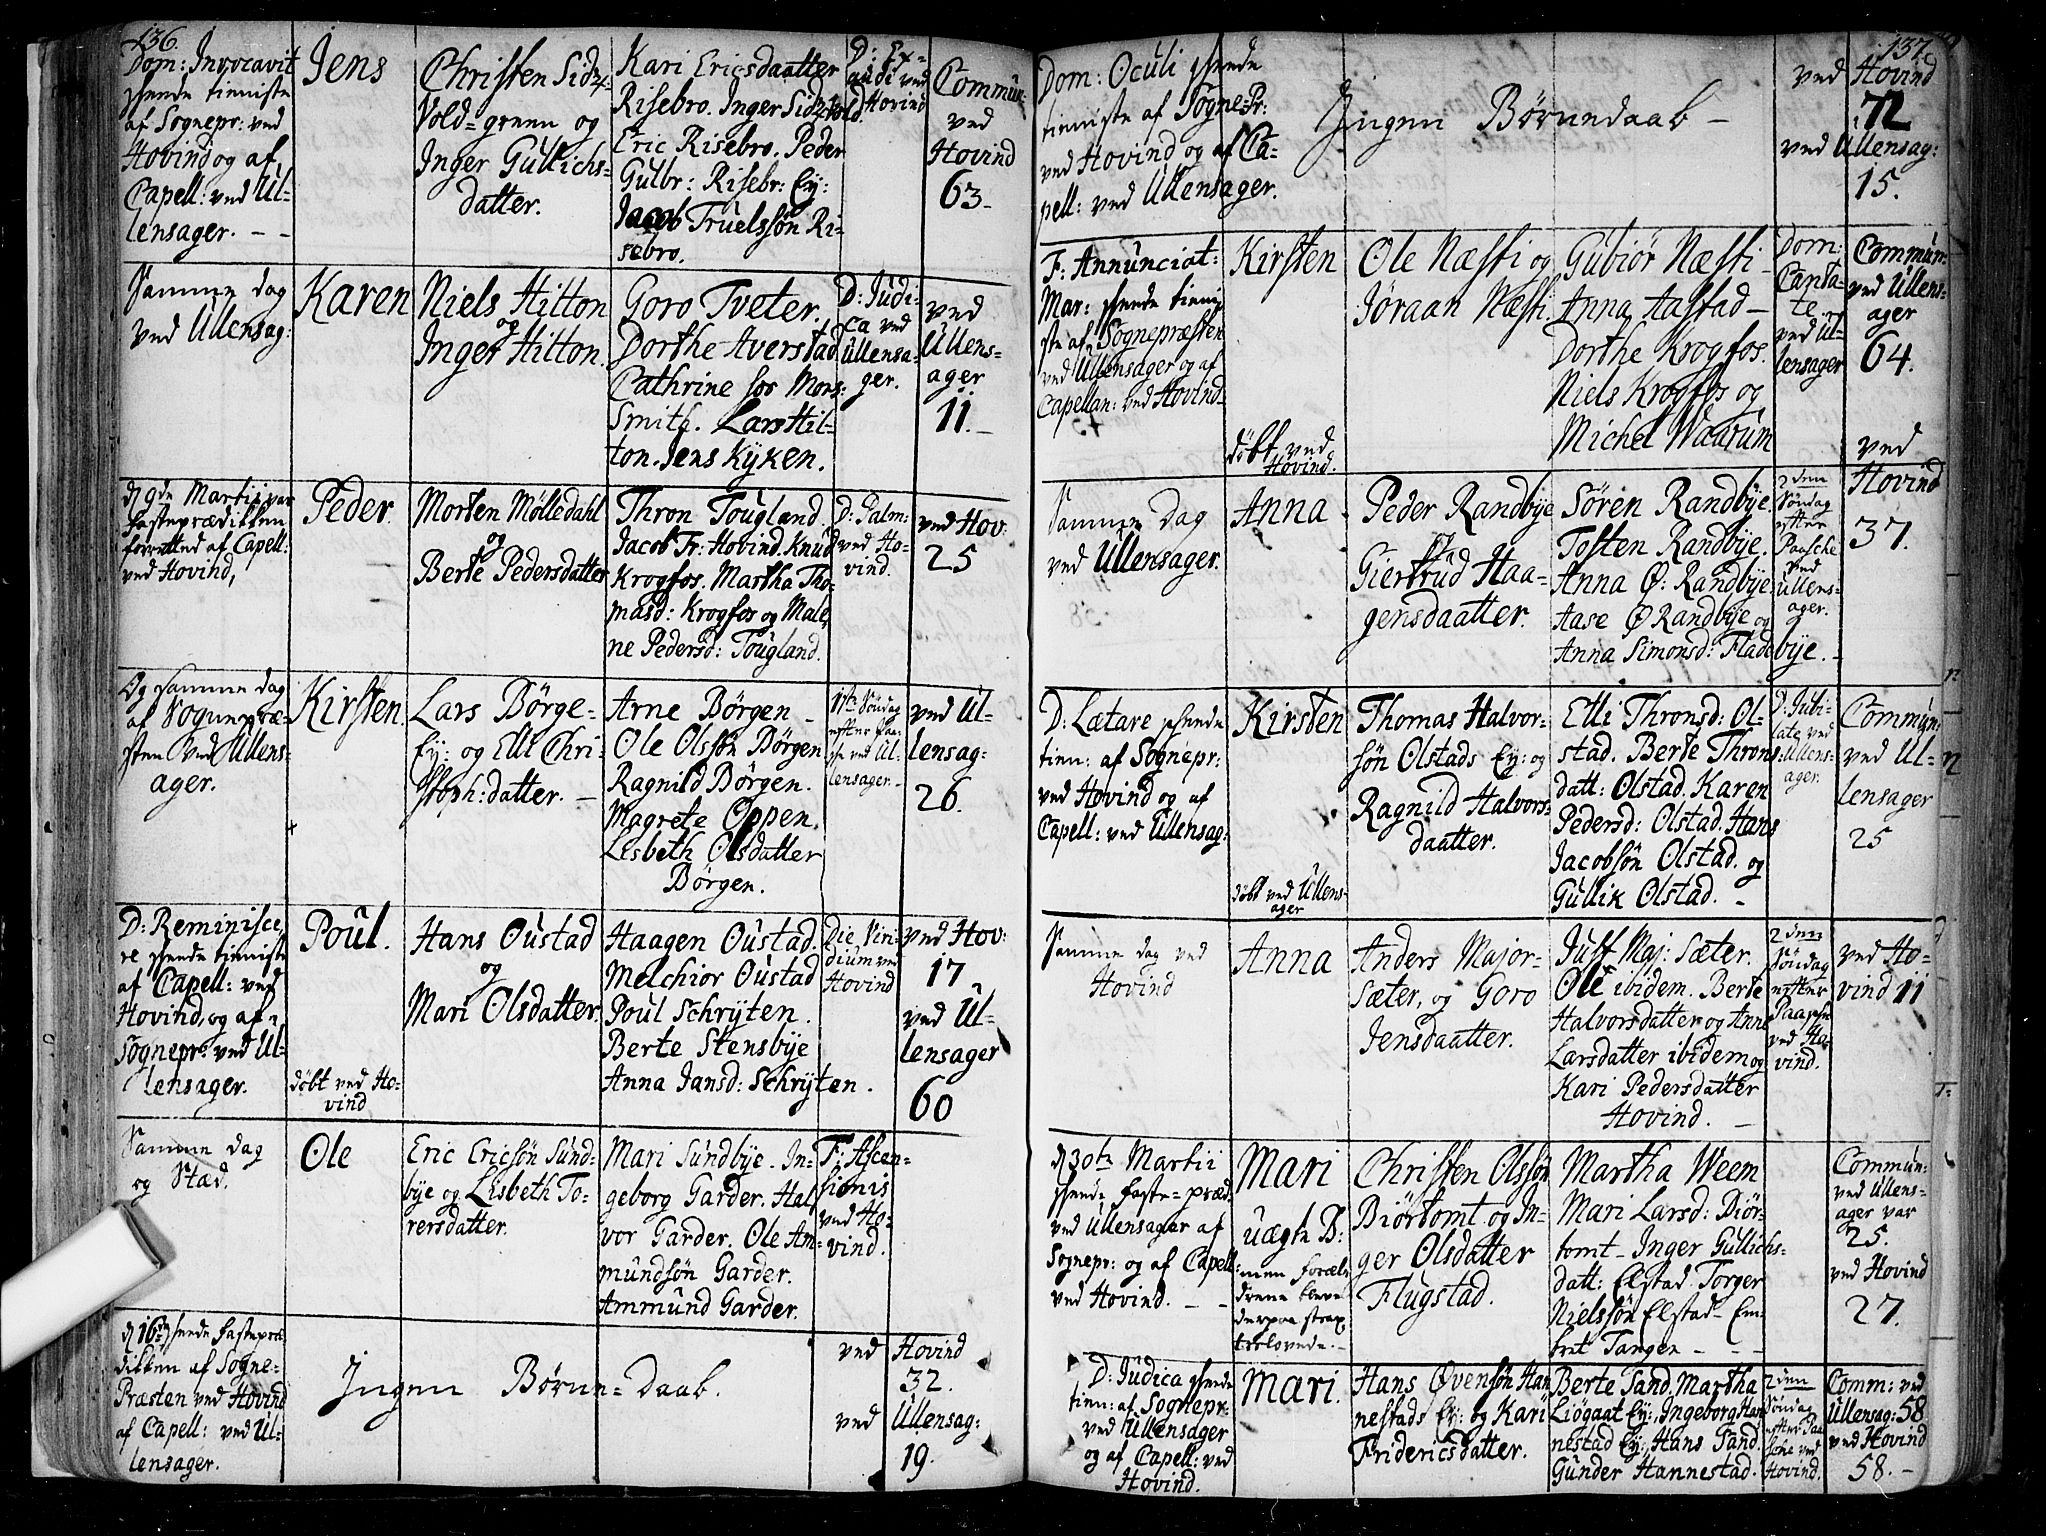 136.
Dom: Invocavit
skeede tieniste
af Sognepr: ved
Hovind og af
Capell: ved Ul-
lensager. - -
Jens
Christen Sidz-
Vold-green og
Inger Gullichs-
datter.
Kari Ericsdaatter
Risebro. Inger Sidzvold.
Eric Risebro. Peder
Gulbr: Risebr: Ey:
Jacob Truelssön Ri-
sebro.
D: Ex-
audi ved
Hovind
Commun:
ved
Hovind
63.-
Samme dag
ved Ullensag:
Karen
Niels Hilton
og
Inger Hilton.
Goro Tveter.
Dorthe Averstad
Cathrine hos Mons:
Smith. Lars Hil-
ton. Jens Kÿken.
D: Judi-
ca ved
Ullensa-
ger.
ved
Ullens-
ager
11.-
d 9de Martii var
fasteprædikken
forretted af Capell:
ved Hovind,
Peder.
Morten Mölledahl
og
Berte Pedersdatter
Thron Tougland.
Jacob Fr: Hovind. Knud
Krogfos. Martha Tho-
masd: Krogfos og Male-
ne Pedersd: Tougland.
D: Palm:
ved Ho-
vind.
ved Hov:
25
Og samme dag
af Sognepræ-
sten ved Ullens-
ager.
Kirsten.
Lars Börge-
Ey: og Elli Chri-
stoph:datter. -
Arne Börgen -
Ole Olssön Börgen
Ragnild Börgen.
Magrete Oppen.
Lisbeth Olsdatter
Börgen.
1ste Söndag
efter Paa-
ske ved Ul-
lensager.-
ved Ul-
lensag:
26.
D: Reminisce-
re skeede tieniste
af Capell: ved
Hovind, og af
Sognepr: ved Ul-
lensager.
Poul.
döbt ved Ho-
vind
Hans Oustad
og
Mari Olsdatter
Haagen Oustad.
Melchior Oustad
Poul Schrÿten.
Berte Stensbÿe
Anna Jansd: Schrÿten.
Die Vin-
dium ved
Hovind
ved Hov:
17
ved Ul-
lensager
60
Samme dag
og Stæd.
Ole
Eric Ericsön Sund-
bÿe og Lisbeth To-
rersdatter.
Mari Sundbÿe. In-
geborg Garder. Hal-
vor Garder. Ole Am-
mundsön Garder.
Ammund Garder.
F: Ascen-
sionis
ved Ho-
vind.
d 16de skeede fastepræ-
dikken af Sogne-
Præsten ved Hovind
af Capell: ved Ul-
lensager.
Ingen Börne-Daab.
ved Hovind
32.
ved Ullensag:
19.
137.
Dom: Oculi skeede
tieniste af Sogne-Pr:
ved Hovind og af Ca-
pell: ved Ullensager.
Ingen Börnedaab -
ved Hovind
72
ved Ullensag:
15.
F: Annunciat:
Mar: skeede tieni-
ste af Sognepræsten
ved Ullensager og af
Capellan: ved Hovind-
Kirsten
döbt ved
Hovind.
Ole Næsti og
Jöraan Næsti.
Gubiör Næsti -
Anna Aastad -
Dorthe Krogfos.
Niels Krogfos og
Michel Waarum
Dom:
Canta-
te.
ved Ul-
lensager
Commun:
ved Ullens-
ager
64.
ved
Hovind
37.
Samme dag
ved Ullensager.
Anna
Peder Randbÿe
og
Giertrud Haa-
gensdaatter.
Sören Randbÿe.
Tosten Randbÿe.
Anna Ø: Randbÿe.
Aase Ø Randbÿe og
Anna Simonsd: Fladebÿe. -
2den
Söndag
efter
Paasche
ved
Ullens-
ager.
D: Lætare skeede
tien: af Sognepr:
ved Hovind og af
Capell: ved Ullensag:
Kirsten
döbt ved Ullens-
ager
Thomas Halvor-
sön Olstads Ey: og
Ragnild Halvors-
daatter.
Elli Thronsd: Ol-
stad. Berte Throns
datt: Olstad. Karen
Pedersd: Olstad. Hans
Jacobsön Olstad. og
Gullik Olstad. -
D: Jubi-
late ved
Ullens-
ager.
Commun:
ved Ul-
lensager
25
Samme dag ved
Hovind
Anna
Anders Major-
Sæter, og Goro
Jensdaatter.
Juff Maj: Sæter.
Ole ibidem. Berte
Halvorsdatter og Anne
Larsdatter ibidem og
Kari Pedersdatter
Hovind. -
2den
Söndag
efter
Paaske
ved Ho-
vind.
ved Ho-
vind 11
d 30te Martii
skeede faste-præd:
ved Ullensager af
Sognepr: og af Capell:
ved Hovind. - -
Mari
uægte B:
men foræl-
drene bleve
derpaa strax
trolovede. -
Christen Olssön
Biörtomt og In-
ger Olsdatter
Flugstad.
Martha Weem
Mari Larsd: Biör-
tomt - Inger Gullichs-
datt: Elstad. Torger
Nielssön Elstad - Em-
bret Tangen - - -
Commun:
ved Ullens-
ager var
25.
ved Hovind
27.
D: Judica skeede
tien: af Sognepr:
ved Ullensager
og af Capell: ved
Hovind.
Mari.
Hans Øvensön Han
nestads Ey: og Kari
Fridericsdatter.
Berte Sand. Martha
Liögaat Ey:, Ingeborg Han
nestad Ey:, Hans Sand.
Gunder Hannestad.
2den
Söndag
efter Paa-
sche ved
Hovind.
Comm: ved
Ullensag: 58
ved Hovind
58.-